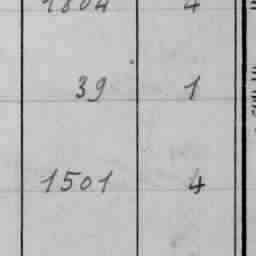 1804 4
39 1
1501 4